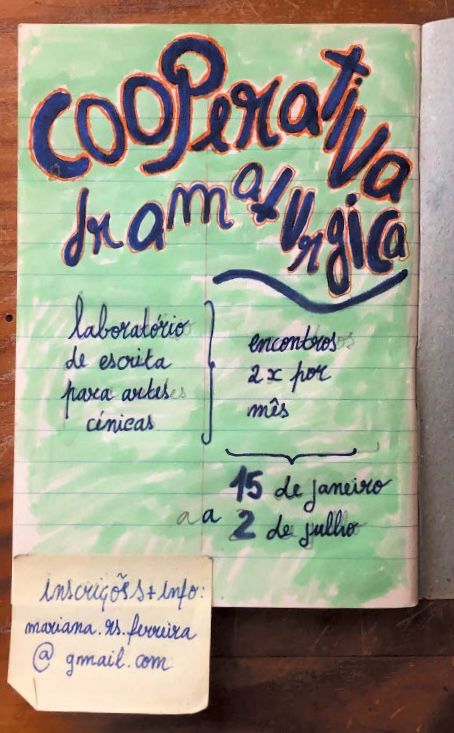 COOPerativa
dramaturgica
laboratório
de escrita
para artes
cénicas
encontros
2 x por
mês
15 de janeiro
a 2 de julho
inscrições+info:
mariana.rs.ferreira
@ gmail.com